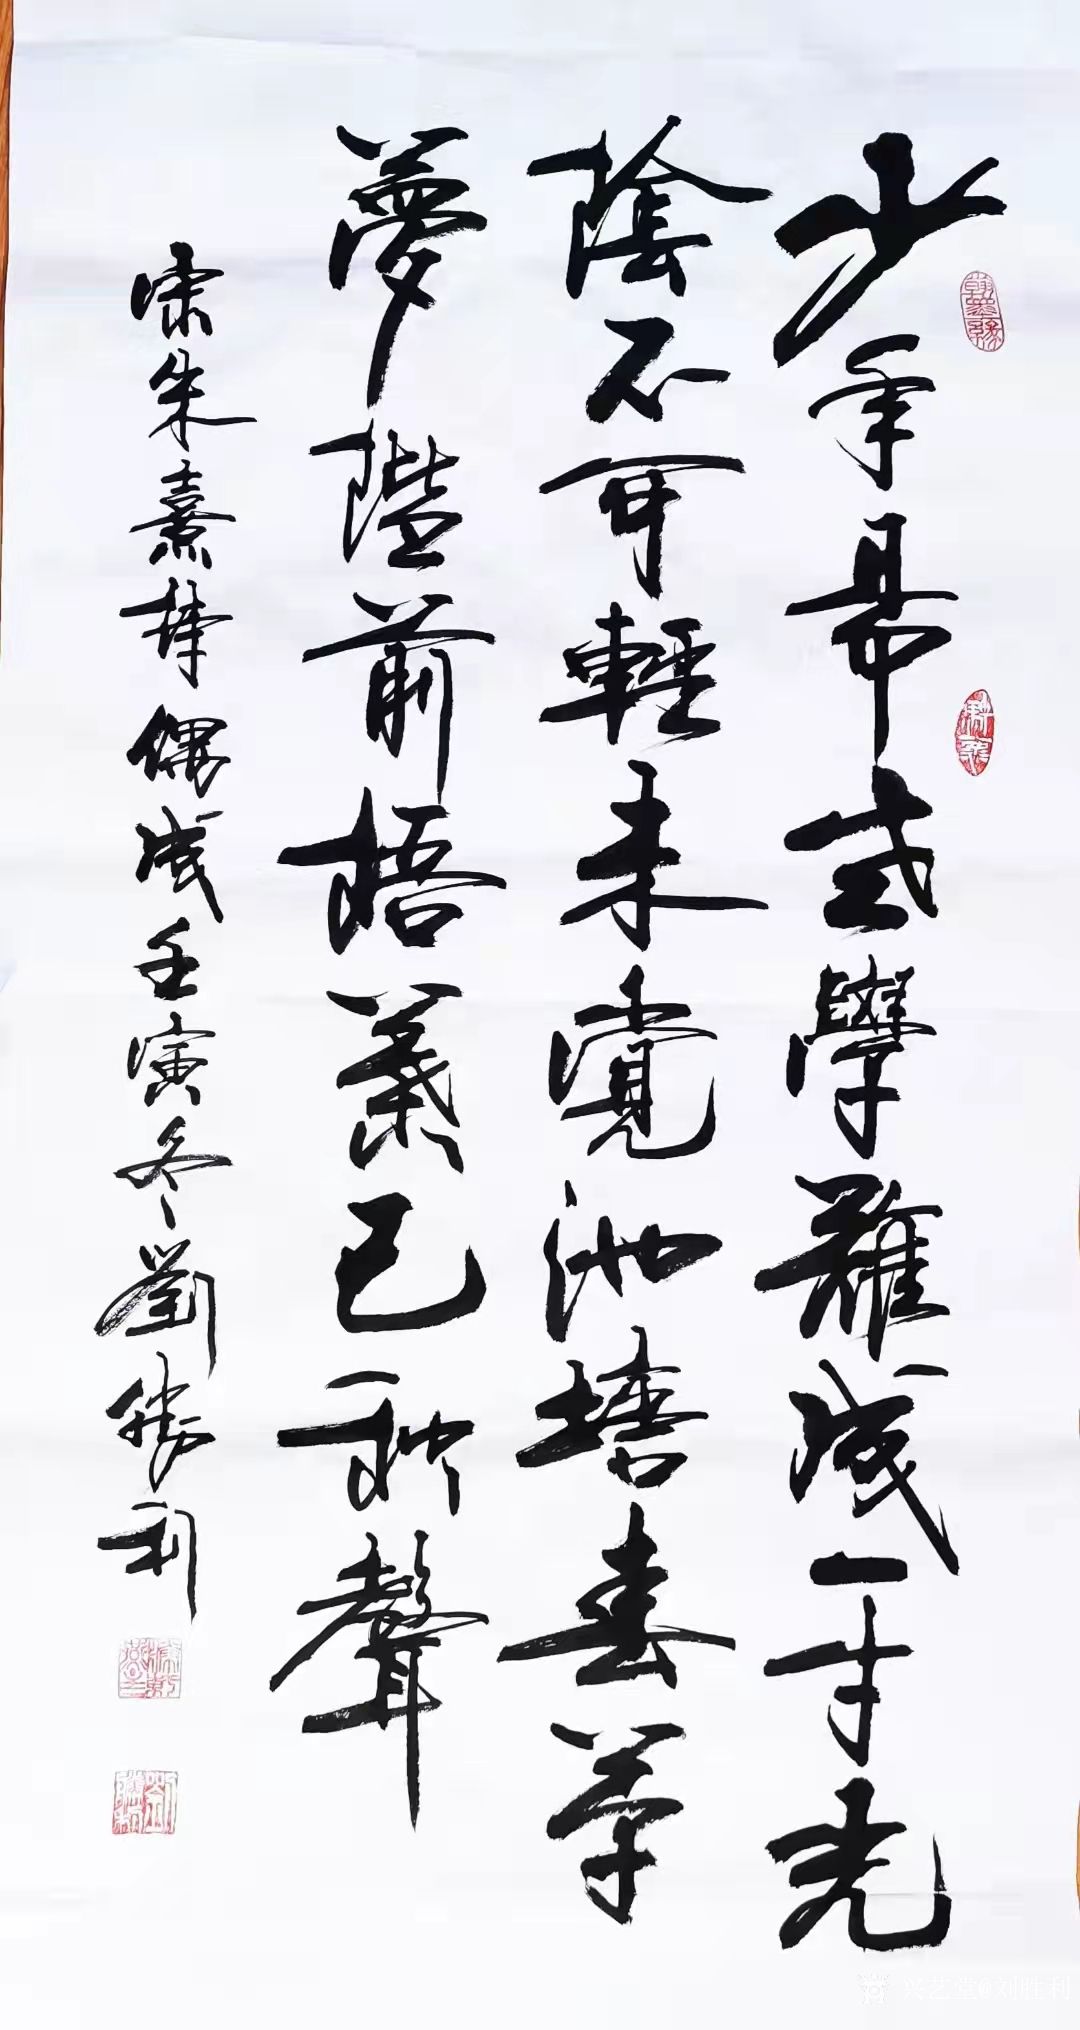 少年易老學難成一寸光
陰不可輕未覺池塘春草
夢階前梧葉已秋聲
朱熹詩偶成壬寅冬劉勝利
翰墨緣
兴艺堂@刘胜利